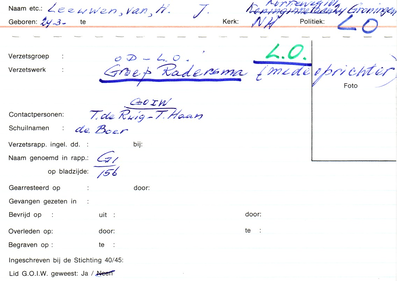 Naam etc.: Leeuwen, van, H. J. Groningen
Geboren: 24-3- te Kerk: NH Politiek: LO
Verzetsgroep : OD-L.O. L.O.
Verzetswerk : Groep Raderama (medeoprichter)
Foto
G.O.I.W
Contactpersonen: T. de Ruig - T. Haan
Schuilnamen : de Boer
Verzetsrapp. ingel. dd. : bij:
Naam genoemd in rapp.: G71
op bladzijde: 156
Gearresteerd op : door:
Gevangen gezeten in :
Bevrijd op : uit : door:
Overleden op: door: te :
Begraven op : te :
Ingeschreven bij de Stichting 40/45:
Lid G.O.I.W. geweest: Ja / Neen